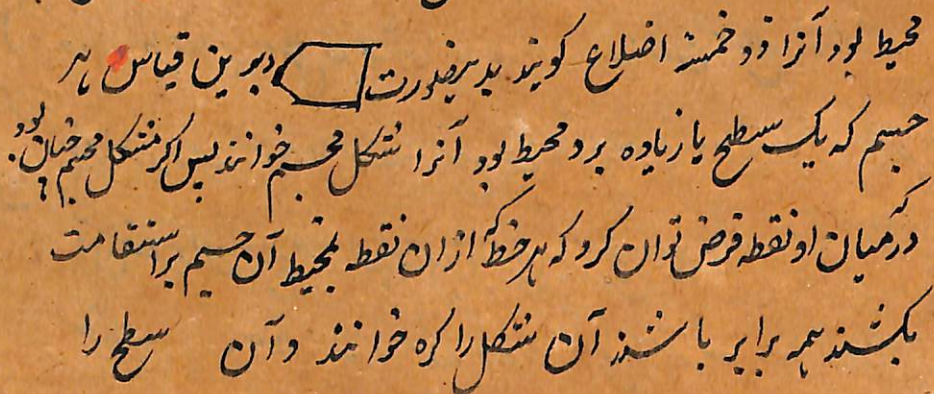 محیط بود آنرا ذو خمسة اضلاع کویند بدینصورت و برین قیاس هر
جسم که یک سطح یا زیاده برو محیط بود آنرا شکل مجسم خوانند پس اکر شکل مجسم چنان بود
که در میان او نقطه فرض توان کرد که هر خط که از ان نقطه بمحیط آن جسم بر استقامت
بکشند همه برابر باشند آن شکل را کره خوانند و آن سطح را